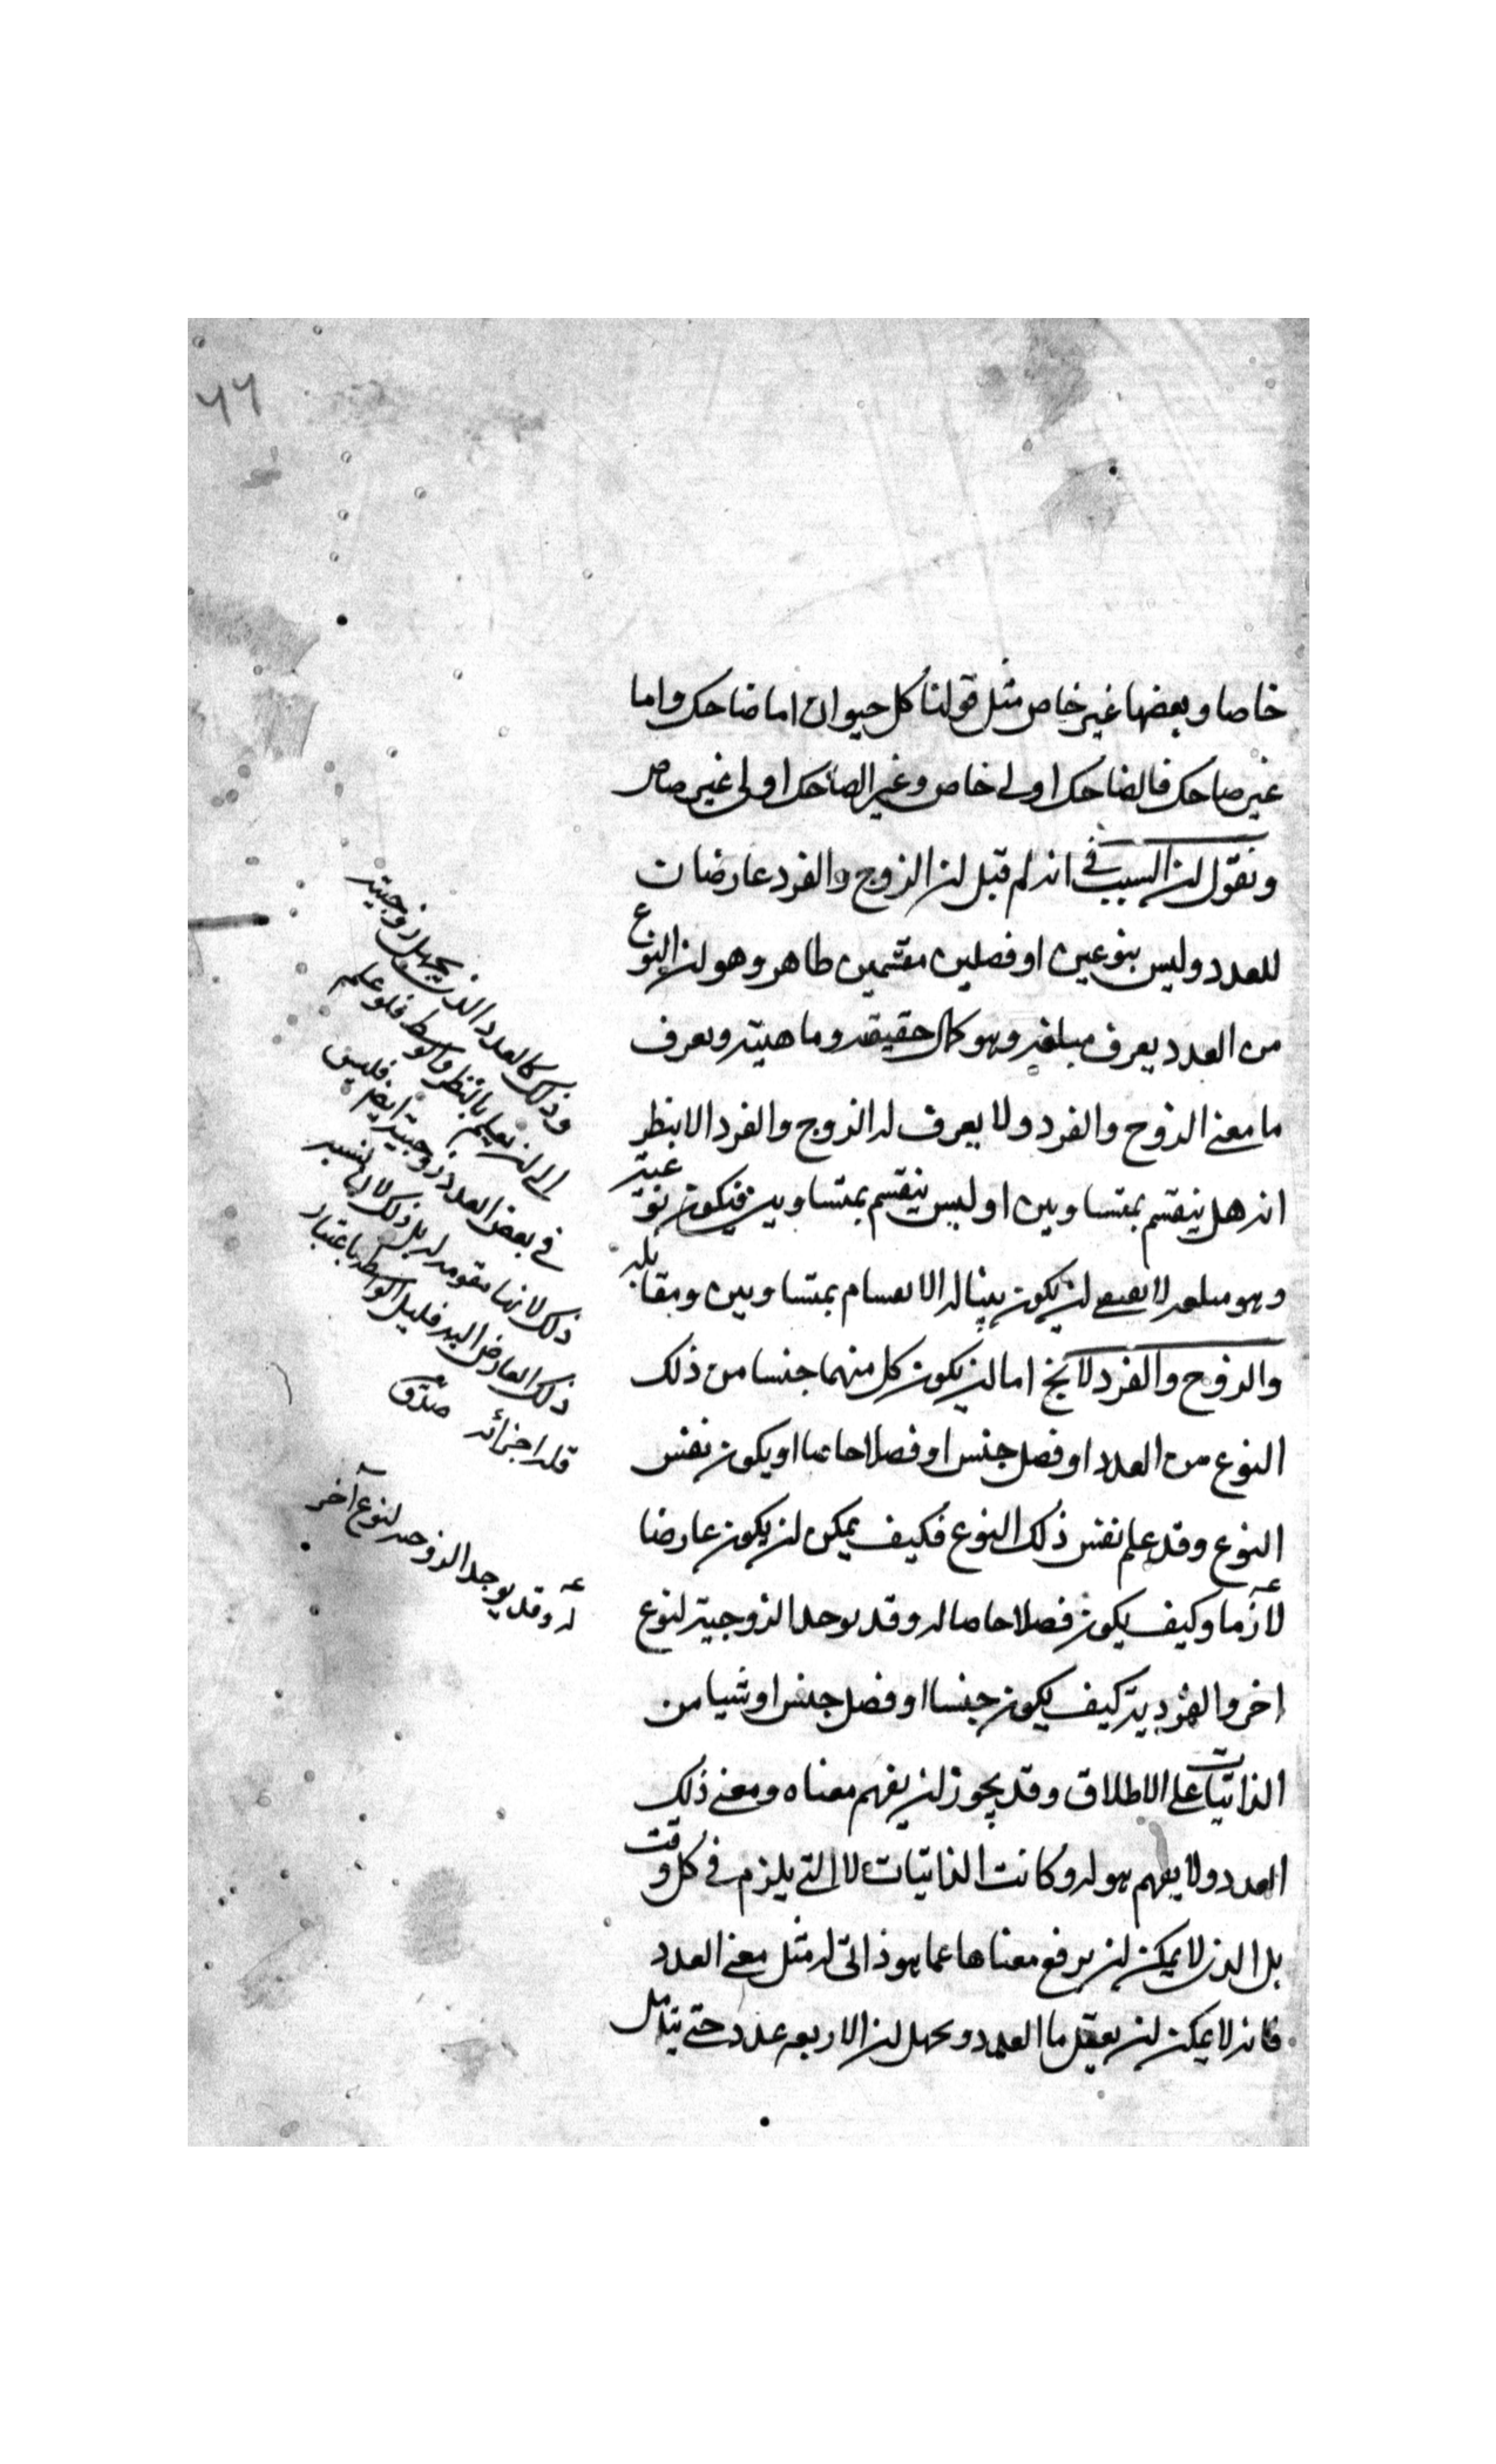 ٧٦
خاصا وبعضها غير خاص مثل قولنا كل حيوان اما ضاحك واما
غير ضاحك فالضاحك اولى خاص وغير الضاحك اولى غير خاص
ونقول ان السبب فى انه لم قبل ان الزوج والفرد عارضات
للعدد وليس بنوعين او فصلين مقسمين ظاهر وهو ان النوع
من العدد يعرف مبلغه وهو كمال حقيقته وماهيته ويعرف
ما معنى الزوج والفرد ولا يعرف له الزوج والفرد الا بنظر
انه هل ينقسم بمتساويين او ليس ينقسم بمتساويين فيكون نوعيته
وهو مبلغه لا يقتضى ان يكون بينا له الانقسام بمتساويين ومقابله
والزوج والفرد لا يخ اما ان يكون كل منهما جنسا من ذلك
النوع من العدد او فصل جنس او فصلا خاصا او يكون نفس
النوع وقد علم نفس ذلك النوع فكيف يمكن ان يكون عارضا
لازما وكيف يكون فصلا خاصا له وقد يوجد الزوجية لنوع
اخر والفردية كيف يكون جنسا او فصل جنس او شيا من
الذاتيات على الاطلاق وقد يجوز ان يفهم معناه ومعنى ذلك
العدد ولا يفهم هو له وكانت الذاتيات لا التى يلزم فى كل وقت
بل الذى لا يمكن ان يرفع معناها عما هو ذاتى له مثل معنى العدد
فانه لا يمكن ان يعقل ما العدد ويجهل ان الاربعه عدد حتى يتامل
وذلك كالعدد الذى يجهل زوجيته
الى ان يعلم بالنظر والوسط فلو علم
فى بعض العدد زوجيته ايض فليس
ذلك لانها مقومه له بل ذلك لان نسبه
ذلك العارض اليه قليل الوسط باعتبار
قله اجزائه صدق
له وقد يوجد الزوجيه لنوع آخر